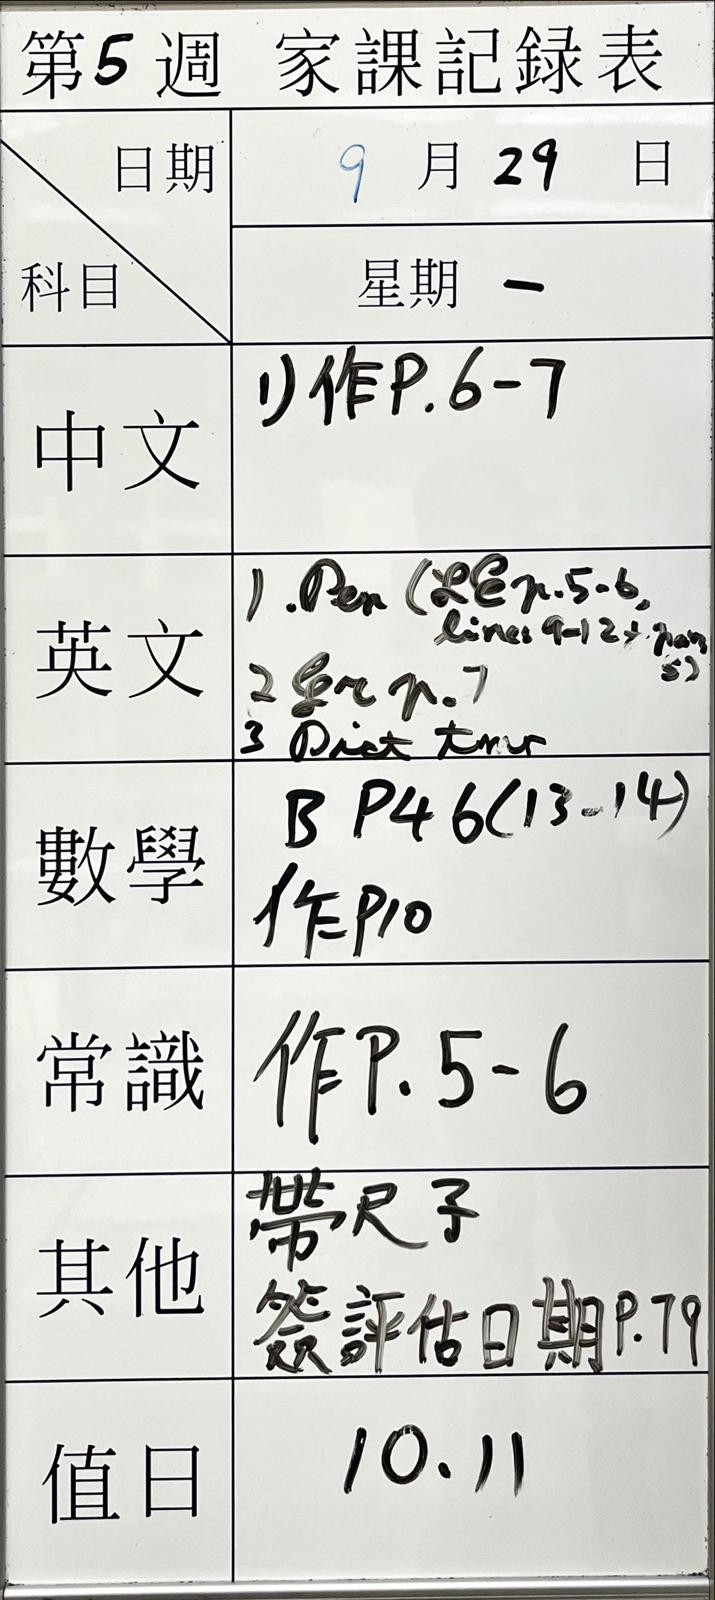 第5週 家課記錄表
日期 9月29日
科目 星期一
中文 1) 作P.6-7
英文 1. Pen (LE p.5-6,
lines 9-12 +
5)
2 p.7
3 Dict
數學 B P46(13-14)
作P10
常識 作P.5-6
其他 帶尺子
簽評估日期P.79
值日 10.11